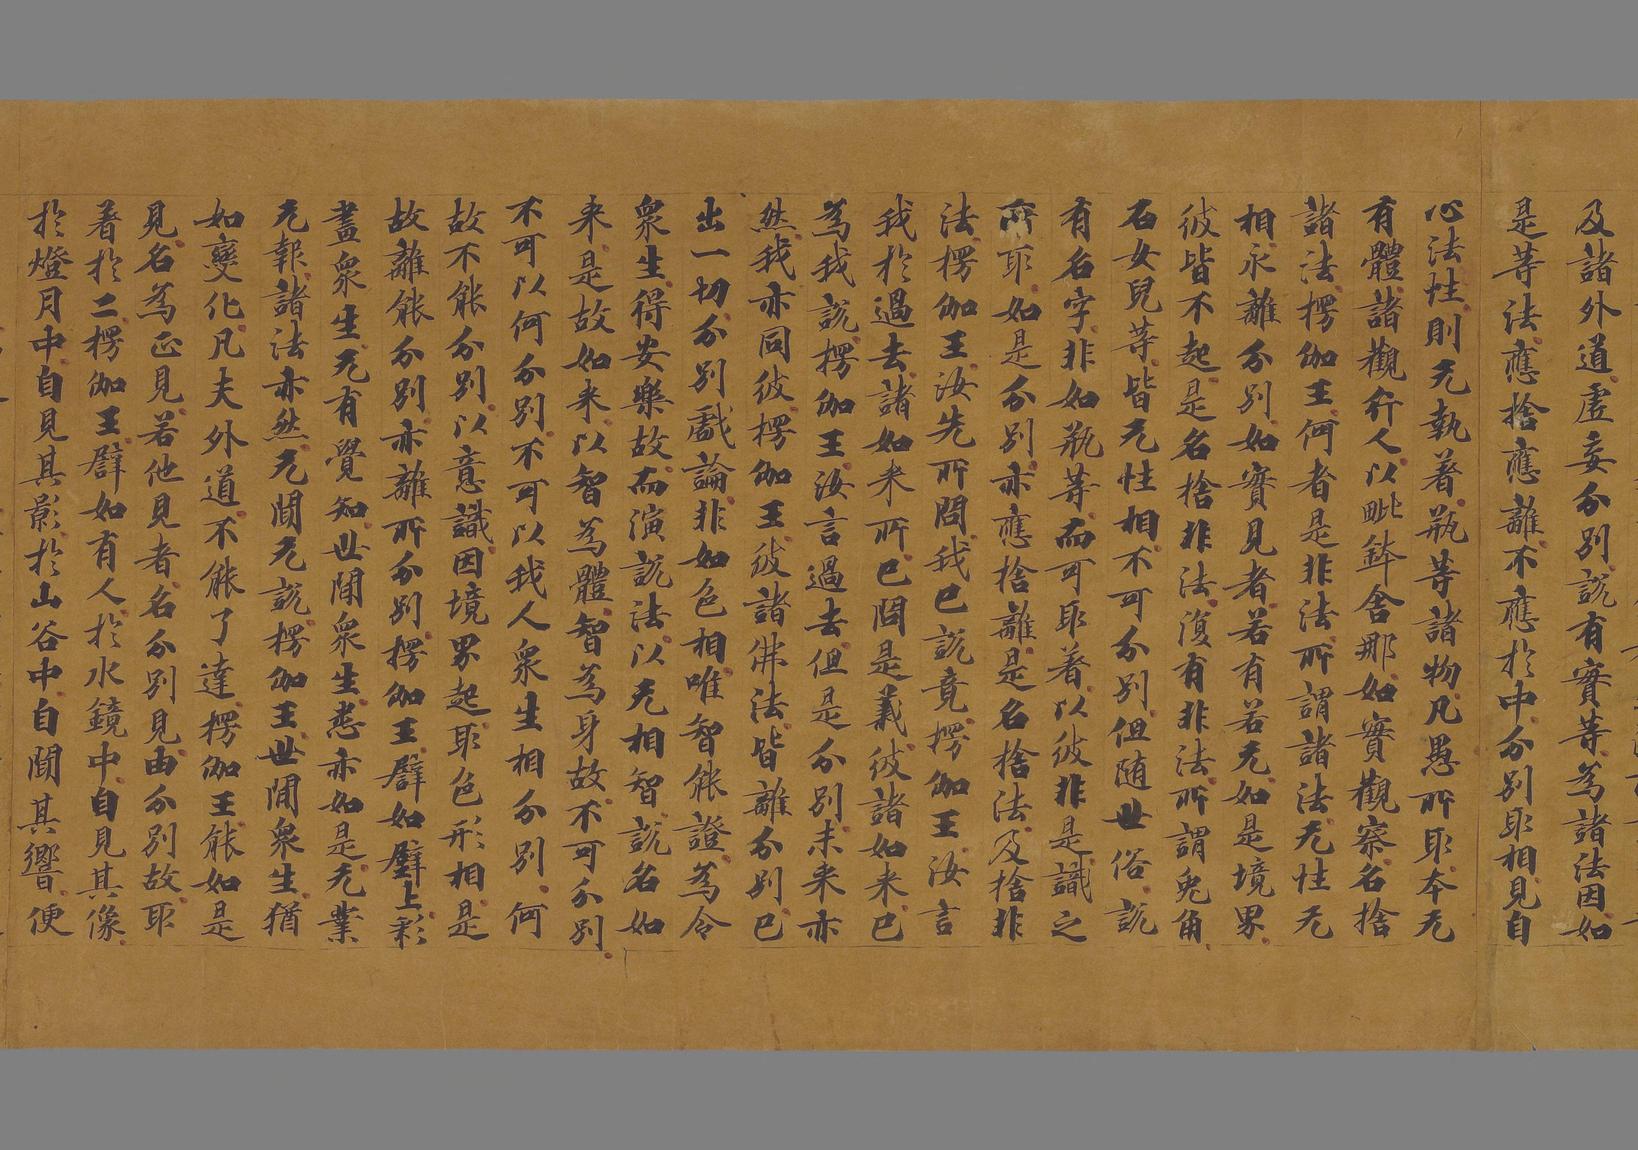 及諸外道虛妄分別說有實等為諸法因如
是等法應捨應離不應於中分別取相見自
心法性則无執著瓶等諸物凡愚所取本无
有體諸觀行人以毗鉢舍那如實觀察名捨
諸法楞伽王何者是非法所謂諸法无性无
相永離分別如實見者若有若无如是境界
彼皆不起是名捨非法復有非法所謂兔角
石女兒等皆无性相不可分別但随世俗說
有名字非如瓶等而可取著以彼非是識之
所取如是分別亦應捨離是名捨法及捨非
法楞伽王汝先所問我已說竟楞伽王汝言
我於過去諸如来所已問是義彼諸如来已
為我說楞伽王汝言過去但是分別未来亦
然我亦同彼楞伽王彼諸佛法皆離分別已
出一切分別戲論非如色相唯智能證為令
眾生得安樂故而演說法以无相智說名如
来是故如来以智為體智為身故不可分別
不可以何分別不可以我人眾生相分別何
故不能分別以意識因境界起取色形相是
故離能分別亦離所分別楞伽王譬如壁上彩
畫眾生无有覺知世閒眾生悉亦如是无業
无報諸法亦然无聞无說楞伽王世閒眾生猶
如變化凡夫外道不能了達楞伽王能如是
見名為正見若他見者名分別見由分別故取
著於二楞伽王譬如有人於水鏡中自見其像
於燈月中自見其影於山谷中自聞其響便